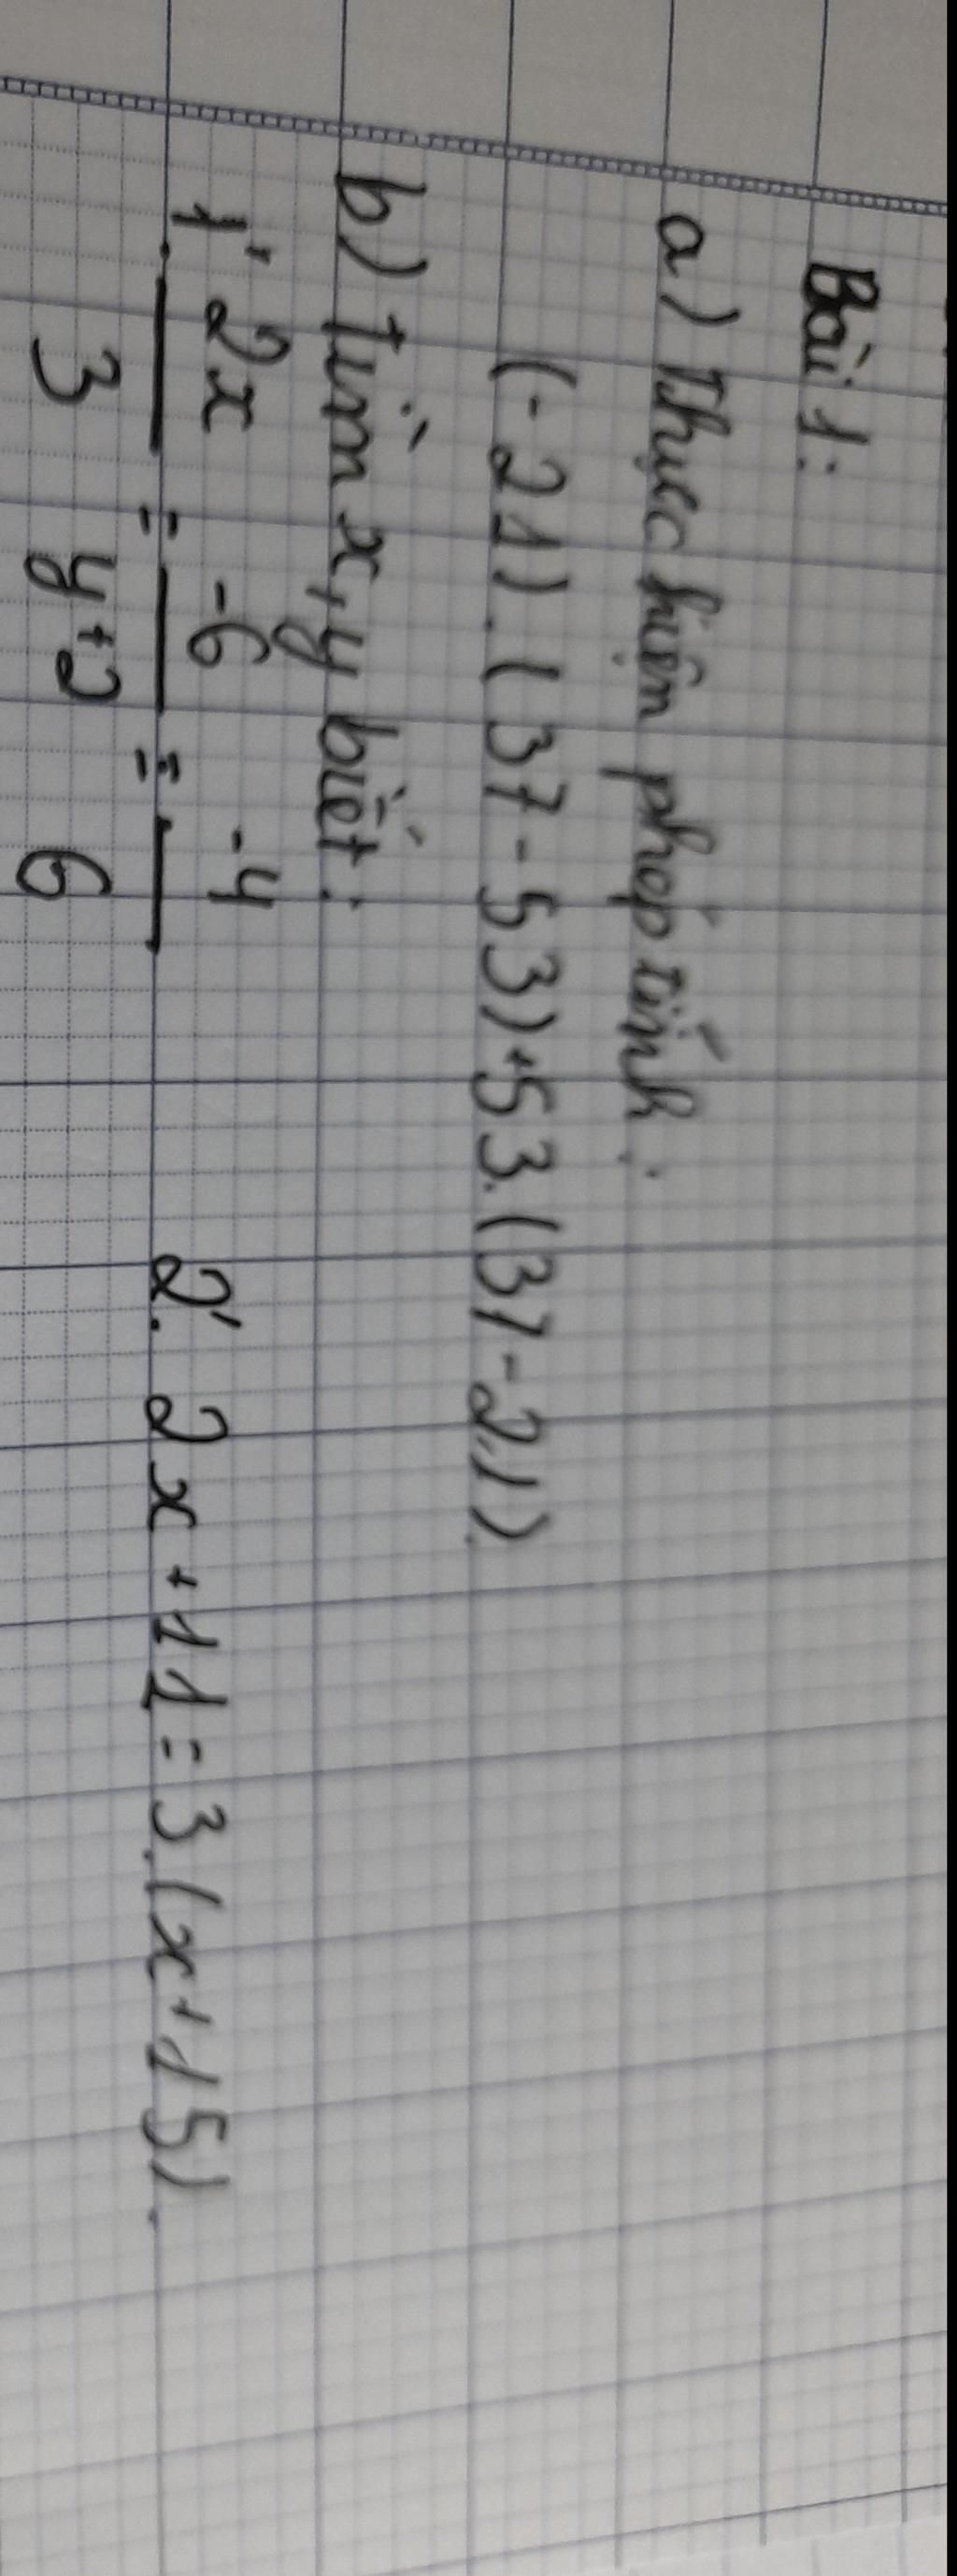 Bài 1:
a) Thực hiện phép tính:
(-21).(37-53)+53.(37-21).
b) tìm x, y biết:
1. 2x/3 = -6/y+2 = -4/6 2. 2x+11=3.(x+15).